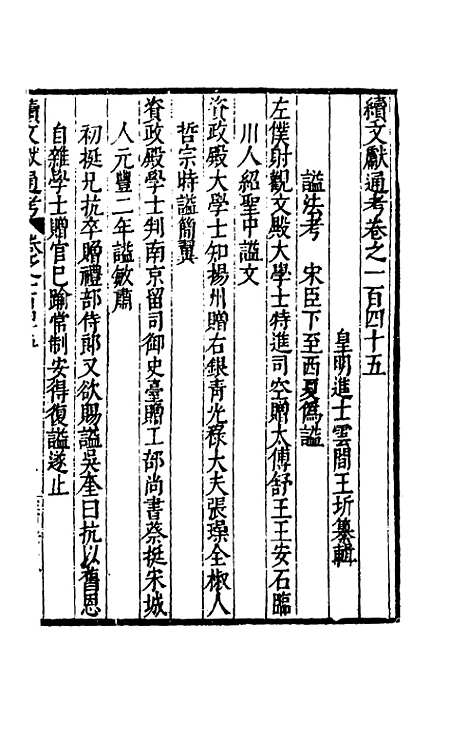 續文獻通考卷之一百四十五
皇明進士雲間王圻纂輯
諡法考　宋臣下至西夏僞諡
左僕射觀文殿大學士特進司空贈太傅舒王王安石臨
川人紹聖中諡文
資政殿大學士知揚州贈右銀青光祿大夫張璪全椒人
哲宗時諡簡翼
資政殿學士判南京留司御史臺贈工部尚書蔡挺宋城
人元豐二年諡敏肅
初挺兄抗卒贈禮部侍郎又欲賜諡吳奎曰抗以舊恩
自雜學士贈官已踰常制安得復諡遂止
續文獻通考